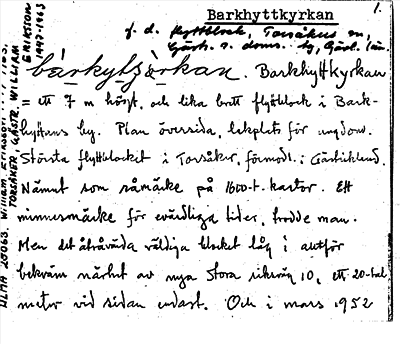 Barkhyttkyrkan
1.
f. d. flyttblock, Torsåkers sn,
Gästr. ö. doms. hg, Gävl. län.
bárkytʃɑ̀rkan. Barkhyttkyrkan
= ett 7 m högt, och lika brett flyttblock i Bark-
hyttans by. Plan översida, lekplats för ungdom.
Största flyttblocket i Torsåker, förmodl. i Gästrikland.
Nämnt som råmärke på 1600-t. kartor. Ett
minnesmärke för evärdliga tider, trodde man.
Men det åtråvärda väldiga blocket låg i alltför
bekväm närhet av nya stora riksväg 10, ett 20-tal
meter vid sidan endast. Och i mars 1952
ULMA 20063. William Eriksson
TORSÅKER, GÄSTR. WILLIAM
ERIKSSON
1947-1963